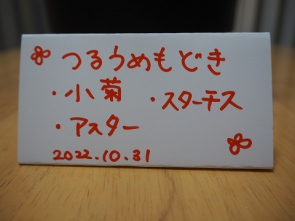 つるうめもどき
・小菊 ・スターチス
・アスター
2022.10.31